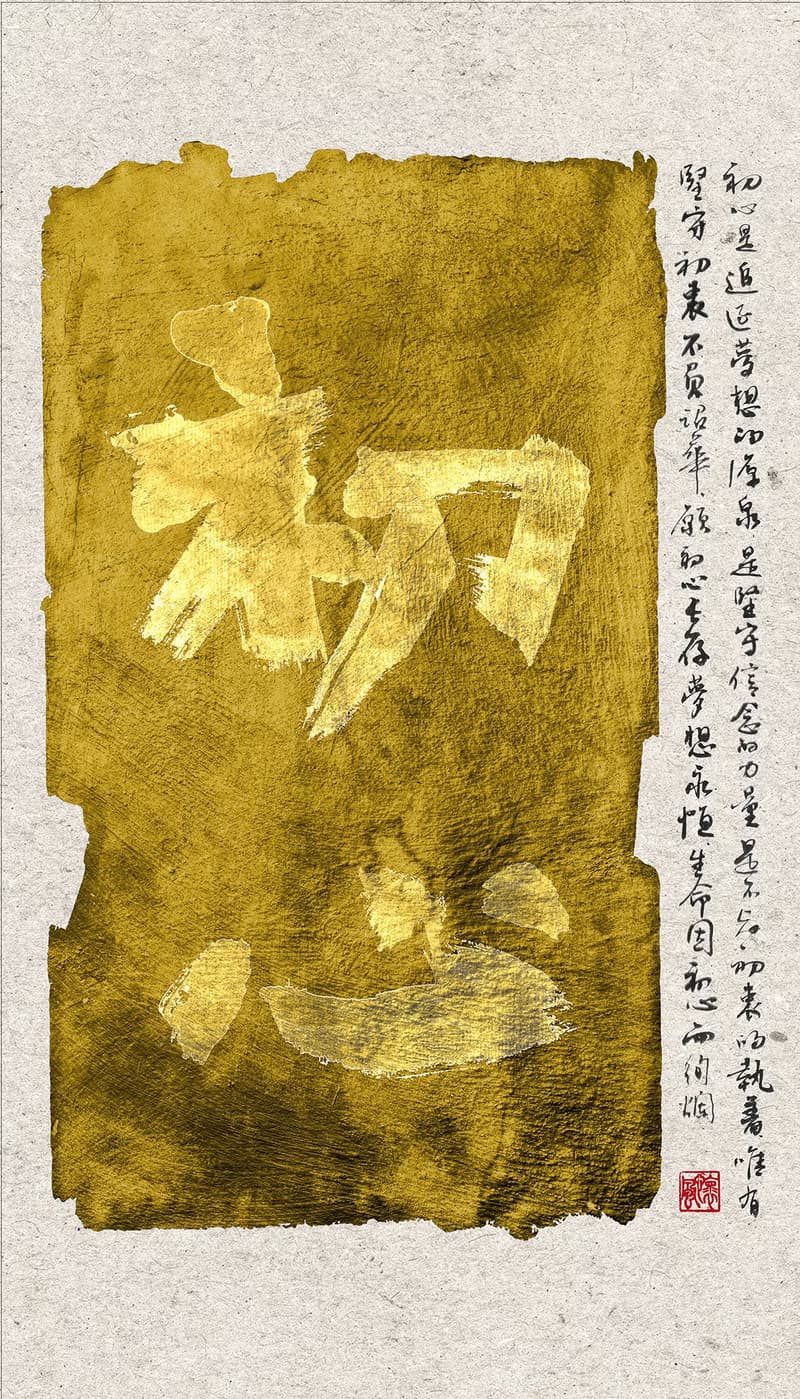 初心
初心是追逐夢想的源泉是堅守信念的力量是不忘初衷的執着唯有
堅守初衷不負韶華願初心長存夢想永恒生命因初心而絢爛